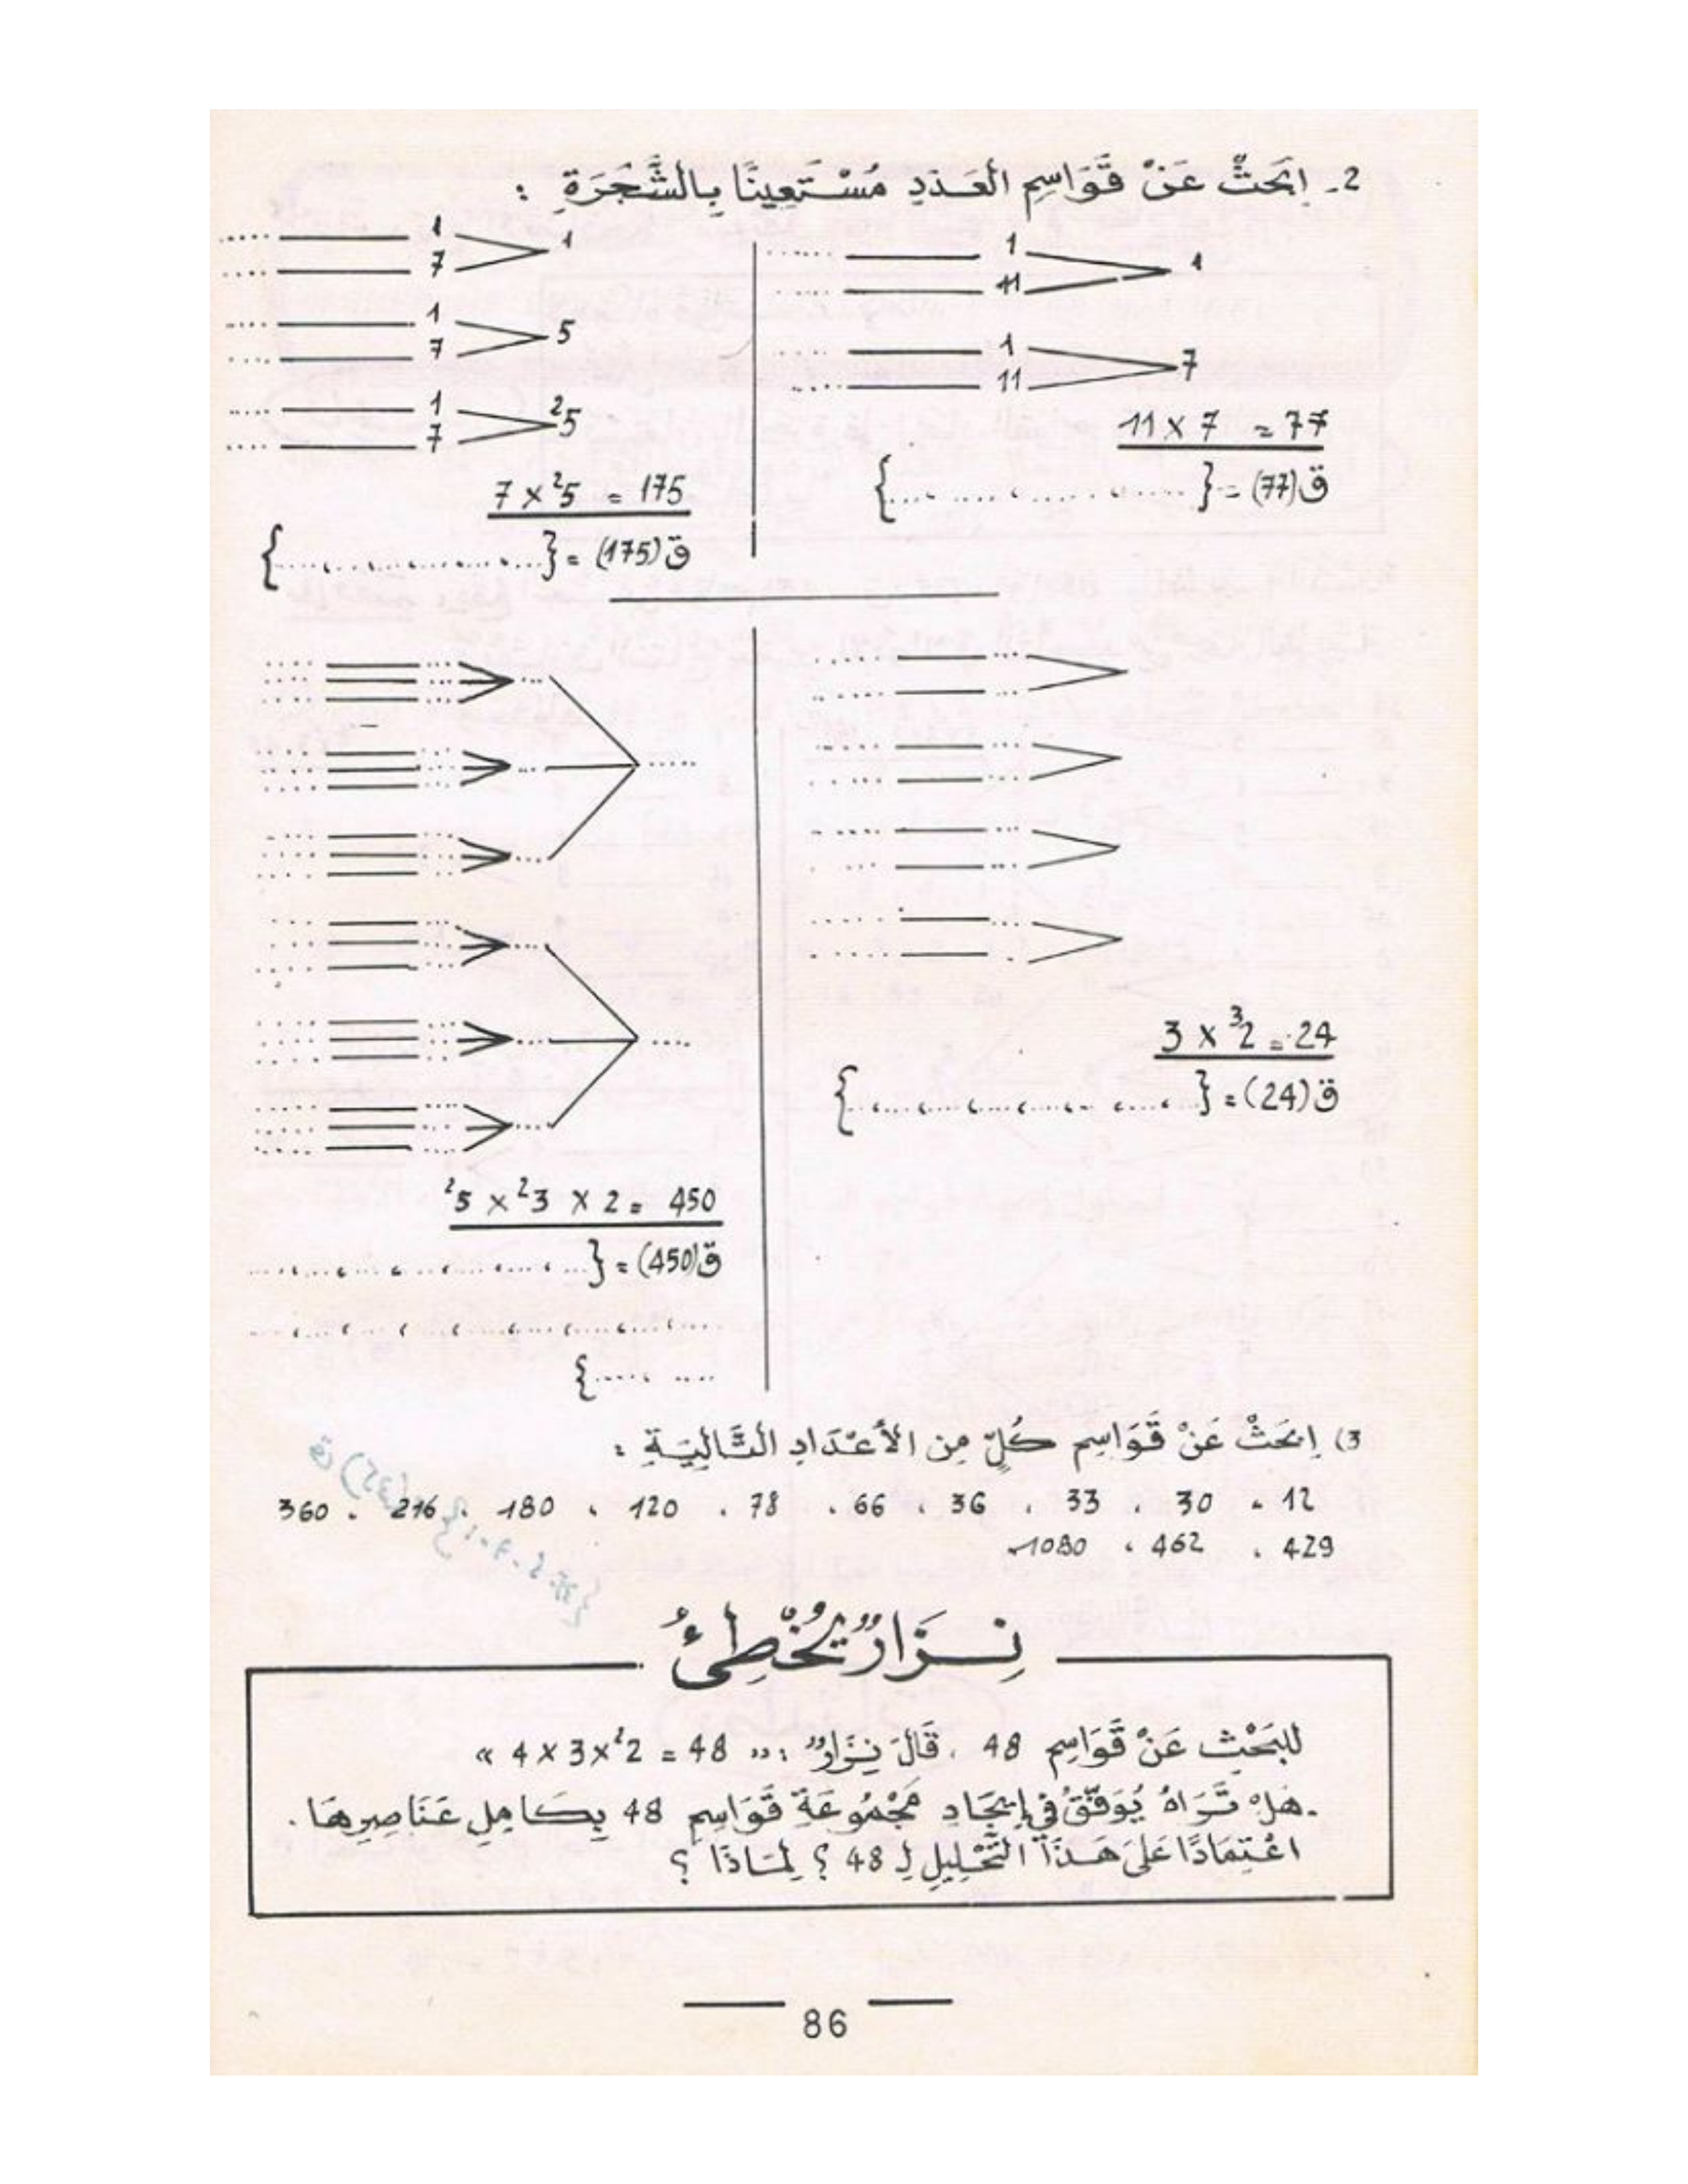 2ـ اِبْحَثْ عَنْ قَوَاسِمِ الْعَدَدِ مُسْتَعِينًا بِالشَّجَرَةِ :
1
1 .....
11 .....
7
1 .....
11 .....
77 = 7 x 11
ق(77) = {..................}
1
1 .....
7 .....
5
1 .....
7 .....
²5
1 .....
7 .....
175 = ²5 x 7
ق(175) = {..................}
24 = ³2 x 3
ق(24) = {..................}
450 = 2 x ²3 x ²5
ق(450) = {..................
..................
..... ....}
3) اِبْحَثْ عَنْ قَوَاسِمِ كُلٍّ مِنَ الأَعْدَادِ التَّالِيَةِ :
12 ، 30 ، 33 ، 36 ، 66 ، 78 ، 120 ، 180 ، 216 ، 360
429 ، 462 ، 1080
ق (35)
نِزَارٌ يُخْطِئُ
لِلبَحْثِ عَنْ قَوَاسِمِ 48 ، قَالَ نِزَارٌ : « 48 = ²2 x 3 x 4 »
ـ هَلْ تَرَاهُ يُوَفَّقُ فِي إِيجَادِ مَجْمُوعَةِ قَوَاسِمِ 48 بِكَامِلِ عَنَاصِرِهَا .
اعْتِمَادًا عَلَى هَذَا التَّحْلِيلِ لِـ 48 ؟ لِمَاذَا ؟
86